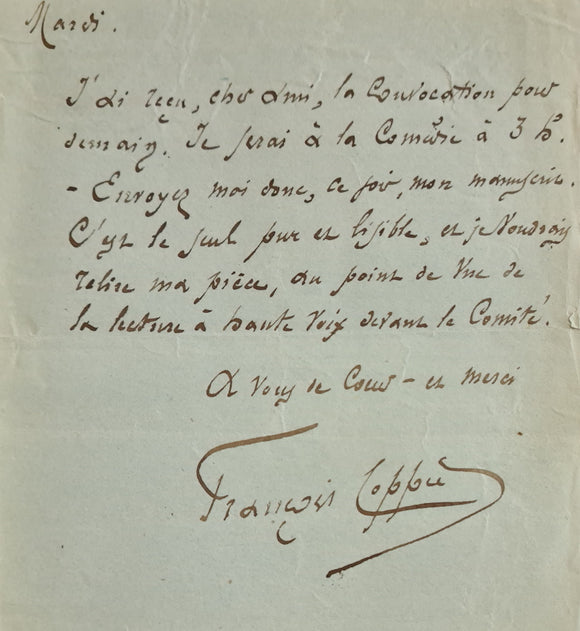 Mardi.
J'ai reçu, cher ami, la Convocation pour
demain. Je serai à la Comédie à 3 h.
- Envoyez moi donc, ce soir, mon manuscrit.
C'est le seul pur et lisible, et je Voudrais
relire ma pièce, au point de Vue de
la lecture à haute Voix devant le Comité.
A vous de Coeur - et merci
François Coppée